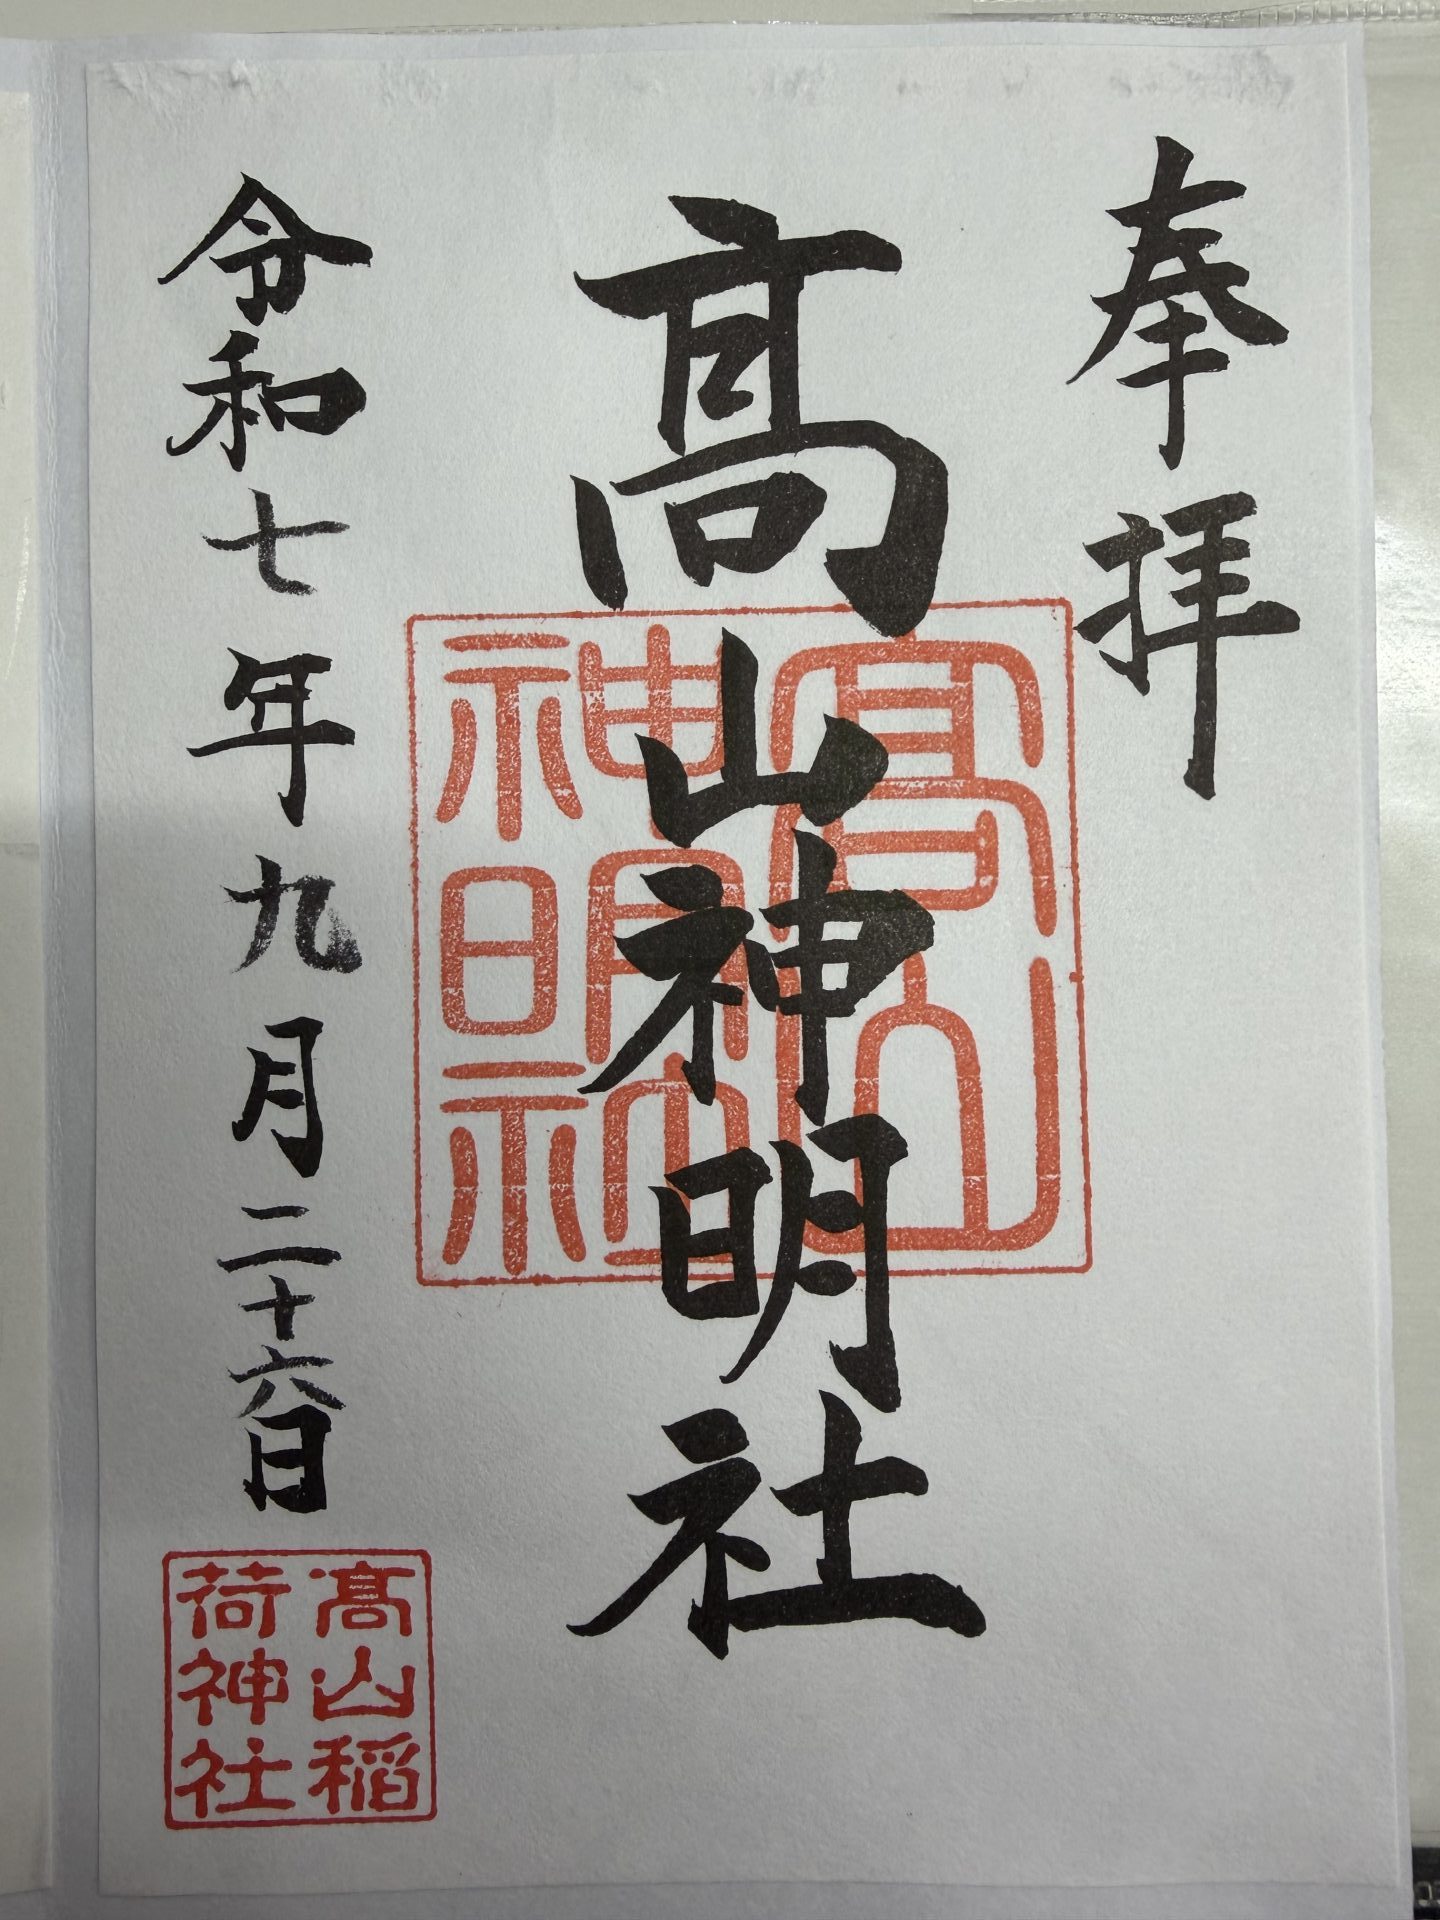 奉拝
髙山神明社
髙山
神明社
令和七年九月二十六日
髙山稲
荷神社